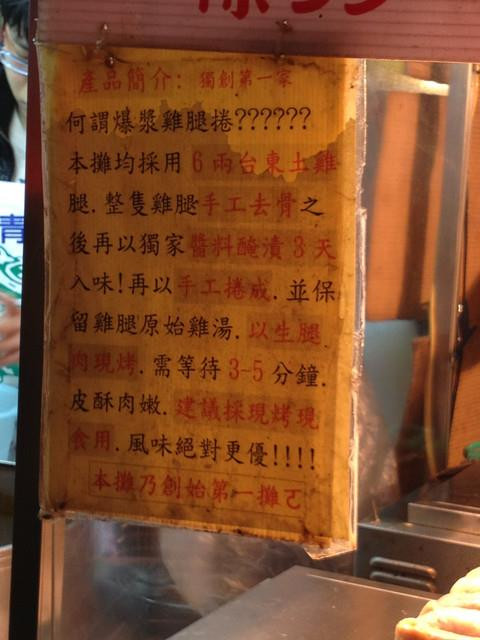 產品簡介: 獨創第一家
何謂爆漿雞腿捲??????
本攤均採用 6 兩台東土雞
腿.整隻雞腿手工去骨之
後再以獨家醬料醃漬 3 天
入味!再以手工捲成.並保
留雞腿原始雞湯.以生腿
肉現烤.需等待 3-5 分鐘.
皮酥肉嫩.建議採現烤現
食用.風味絕對更優!!!!
本攤乃創始第一攤ㄛ
青